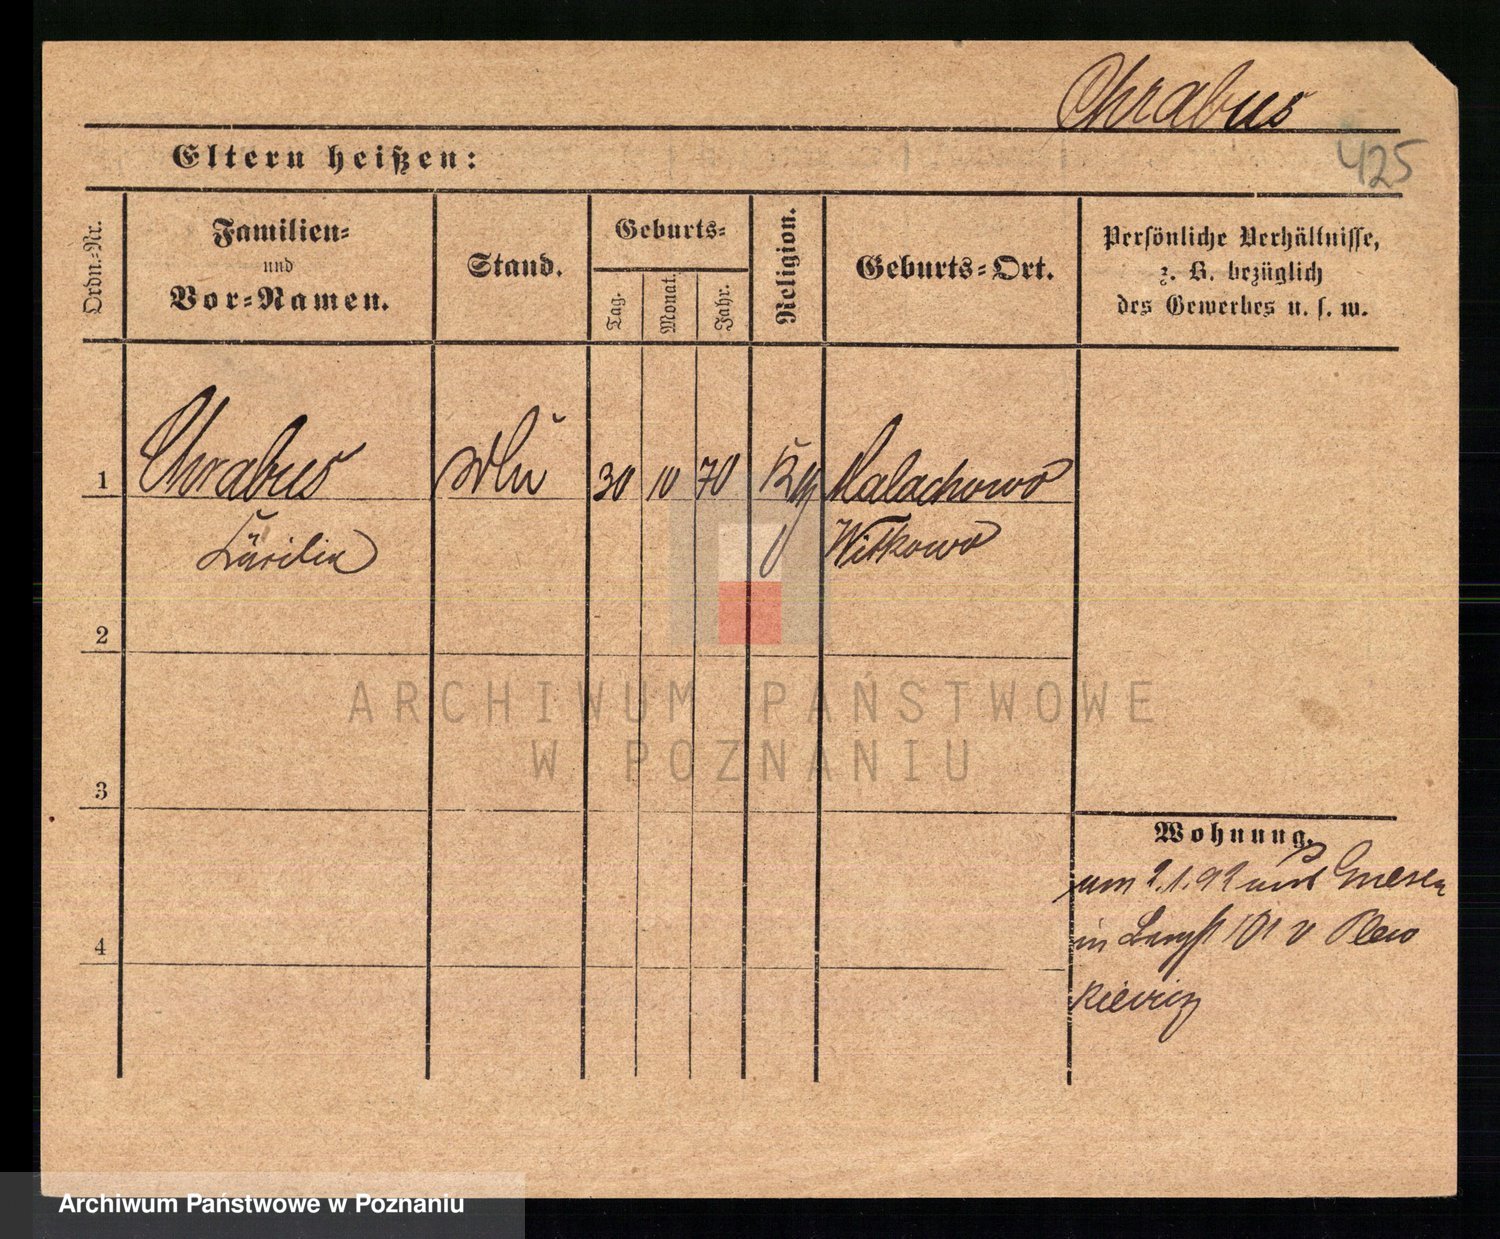 Chrabus
425
Eltern heißen:
Ordn.-Nr.
Familien-
und
Vor-Namen.
Stand.
Geburts-
Tag.
Monat.
Jahr.
Religion.
Geburts-Ort.
Persönliche Verhältnisse,
z. B. bezüglich
des Gewerbes u. s. w.
1 Chrabus 30 10 70 Malachowo
Cäcilia Witkowo
2
ARCHIWUM PAŃSTWOWE
W POZNANIU
3
4
Wohnung.
am 2.1.92 aus Gnesen
in 101 v Plew
kiewicz
Archiwum Państwowe w Poznaniu